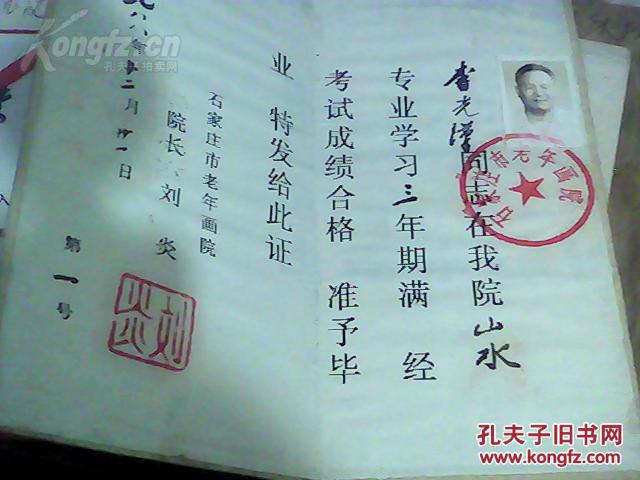 李光澤同志在我院山水
专业学习三年期满 经
考试成绩合格 准予毕
业 特发给此证
石家庄市老年画院
院长 刘炎
八八年十二月廿一日
第一号
石家庄市老年画院
刘炎
Kongfz.com
孔夫子旧书网
www.kongfz.com